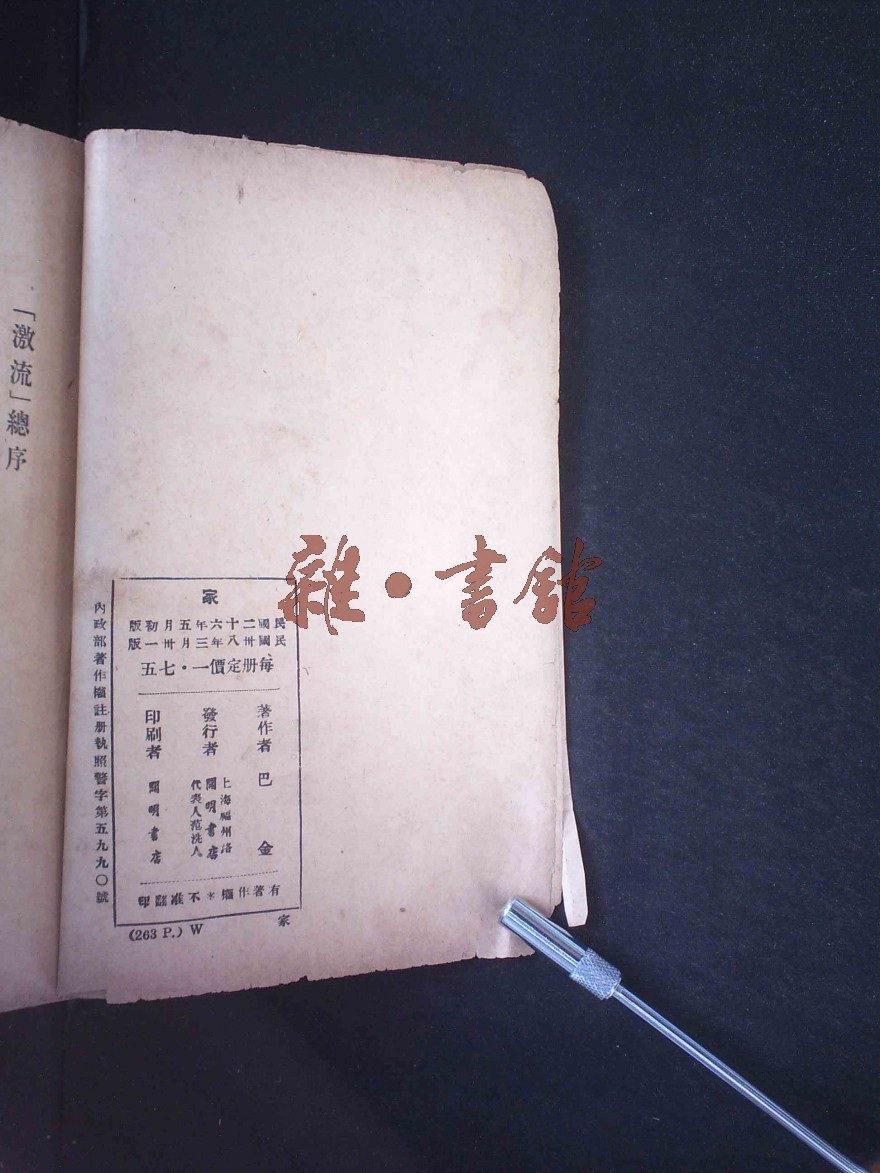 「激流」總序
雜・書館
家
民國二十六年五月初版
民國卅八年三月卅一版
每册定價一・七五
著作者 巴金
發行者
上海福州路
開明書店
代表人范洗人
印刷者 開明書店
有著作權*不准翻印
內政部著作權註册執照警字第五九九〇號
(263 P.) W 家